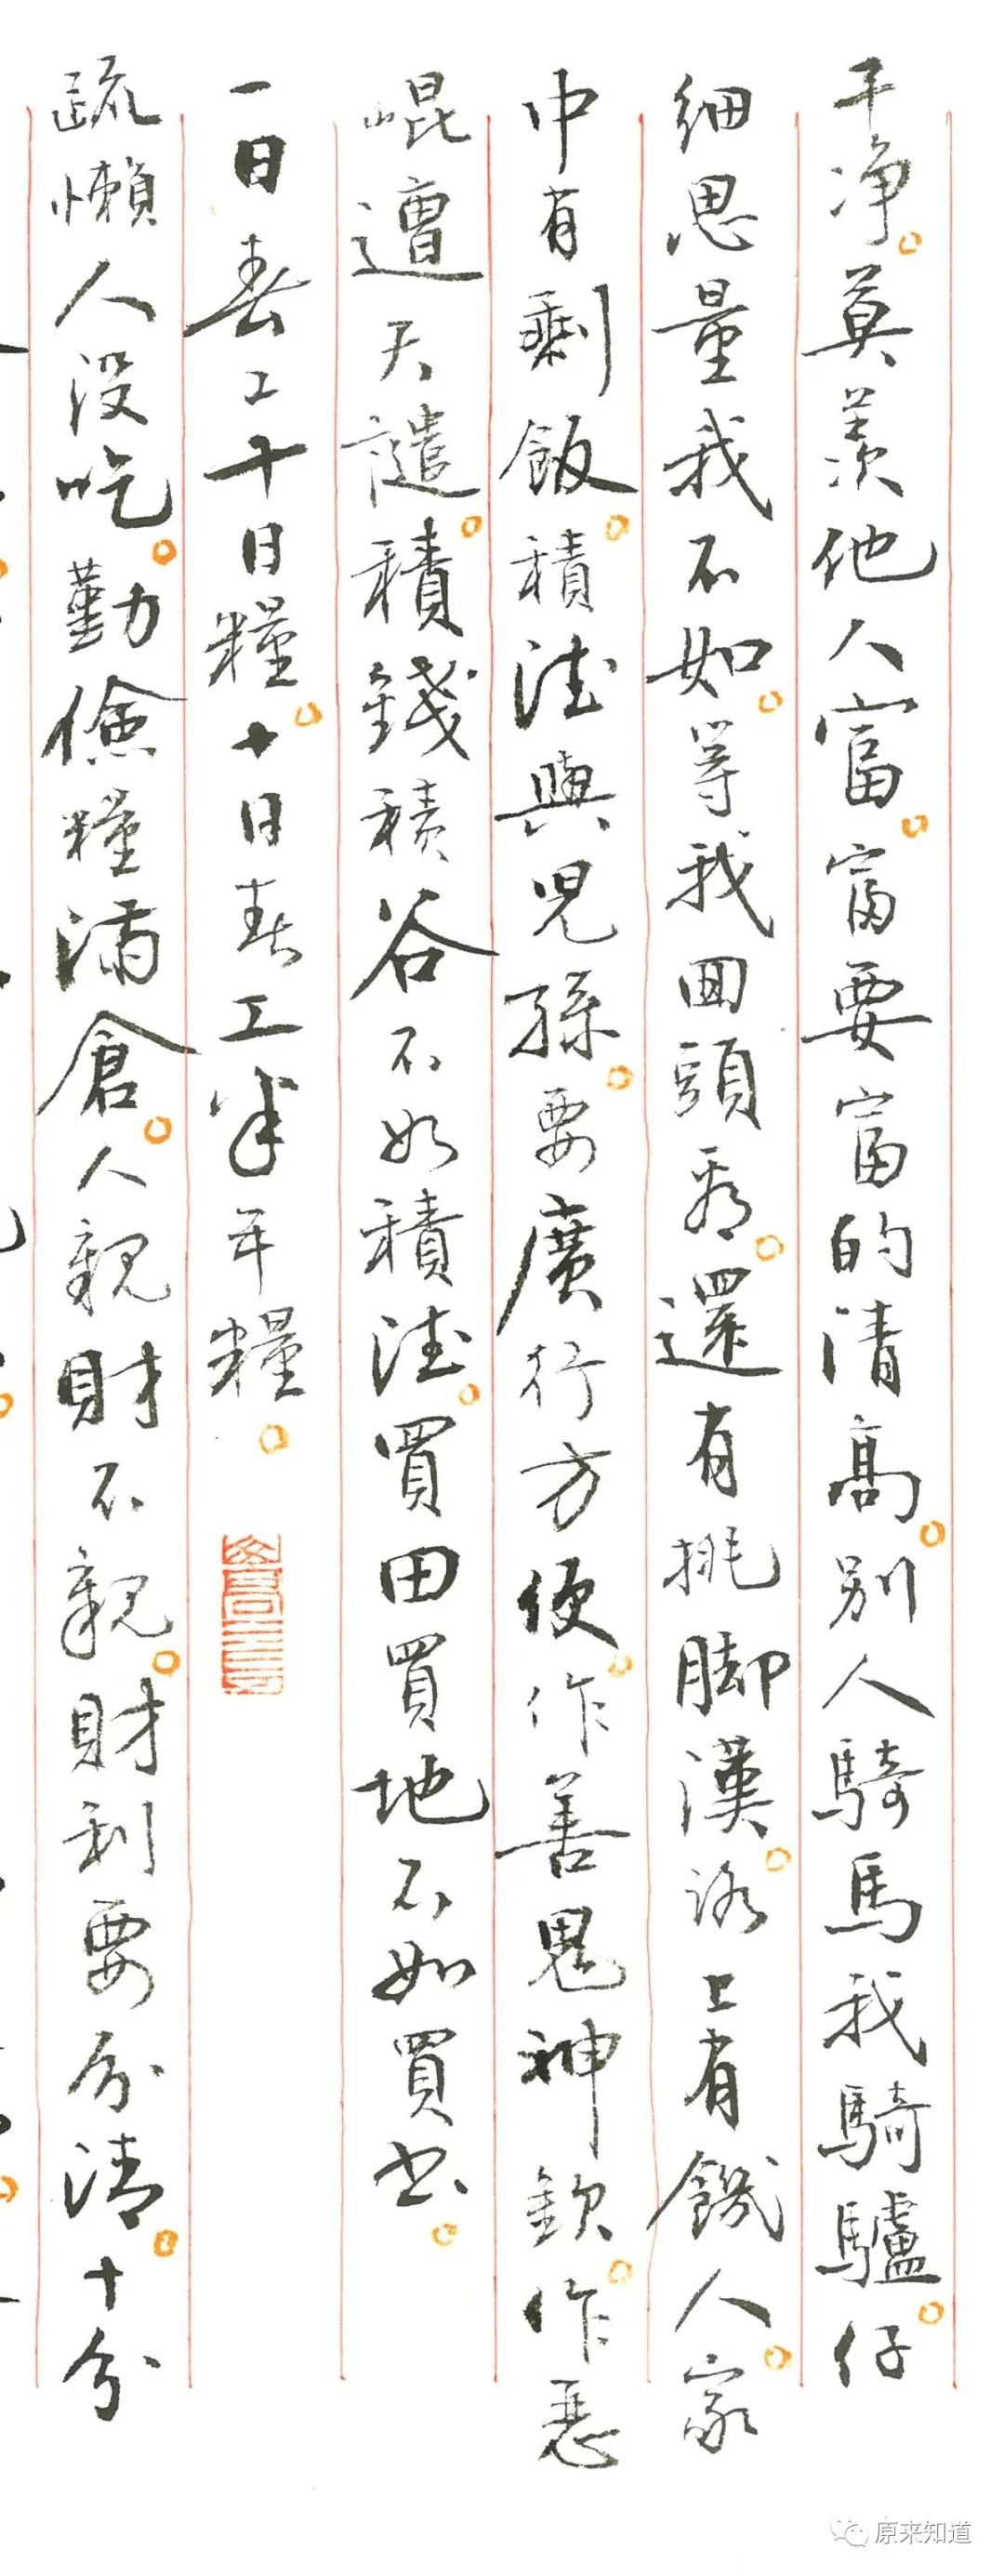 干净。莫羡他人富。富要富的清高。别人騎馬我騎驢。仔
细思量我不如。等我回頭看。還有挑脚漢。路上有饑人。家
中有剩飯。積德與兒孫。要廣行方便。作善鬼神欽。作惡
崐遭天譴。積錢積谷不如積德。買田買地不如買书。
一日春工十日糧。十日春工半年糧。
疏懶人没吃。勤儉糧满倉。人親財不親。財利要分清。十分
原来知道